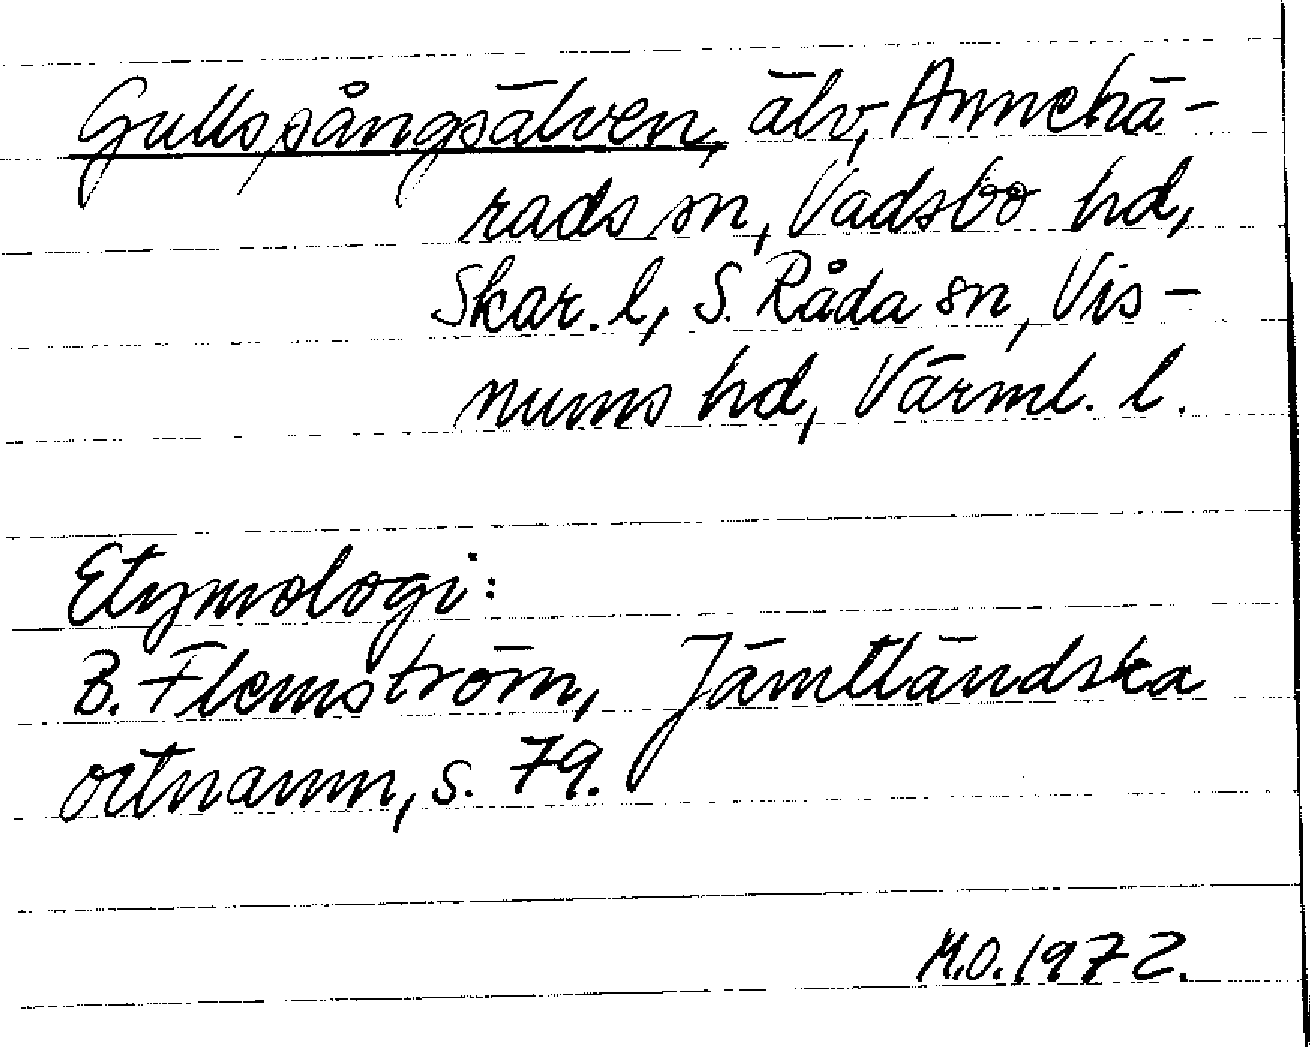 Gullspångsälven, älv, Amnehä-
rads sn, Vadsbo hd,
Skar. l, S. Råda sn, Vis-
nums hd, Värml. l.
Etymologi:
B. Flemström, Jämtländska
ortnamn, s. 79.
M.O. 1972.